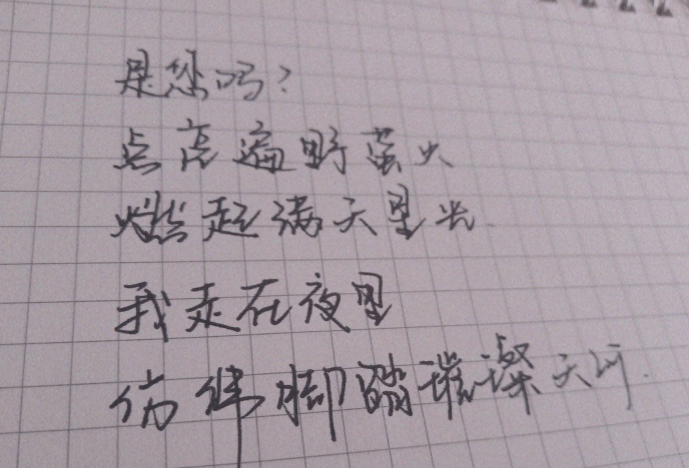 是您吗?
点亮遍野萤火
燃起满天星光
我走在夜里
仿佛脚踏璀璨天河.